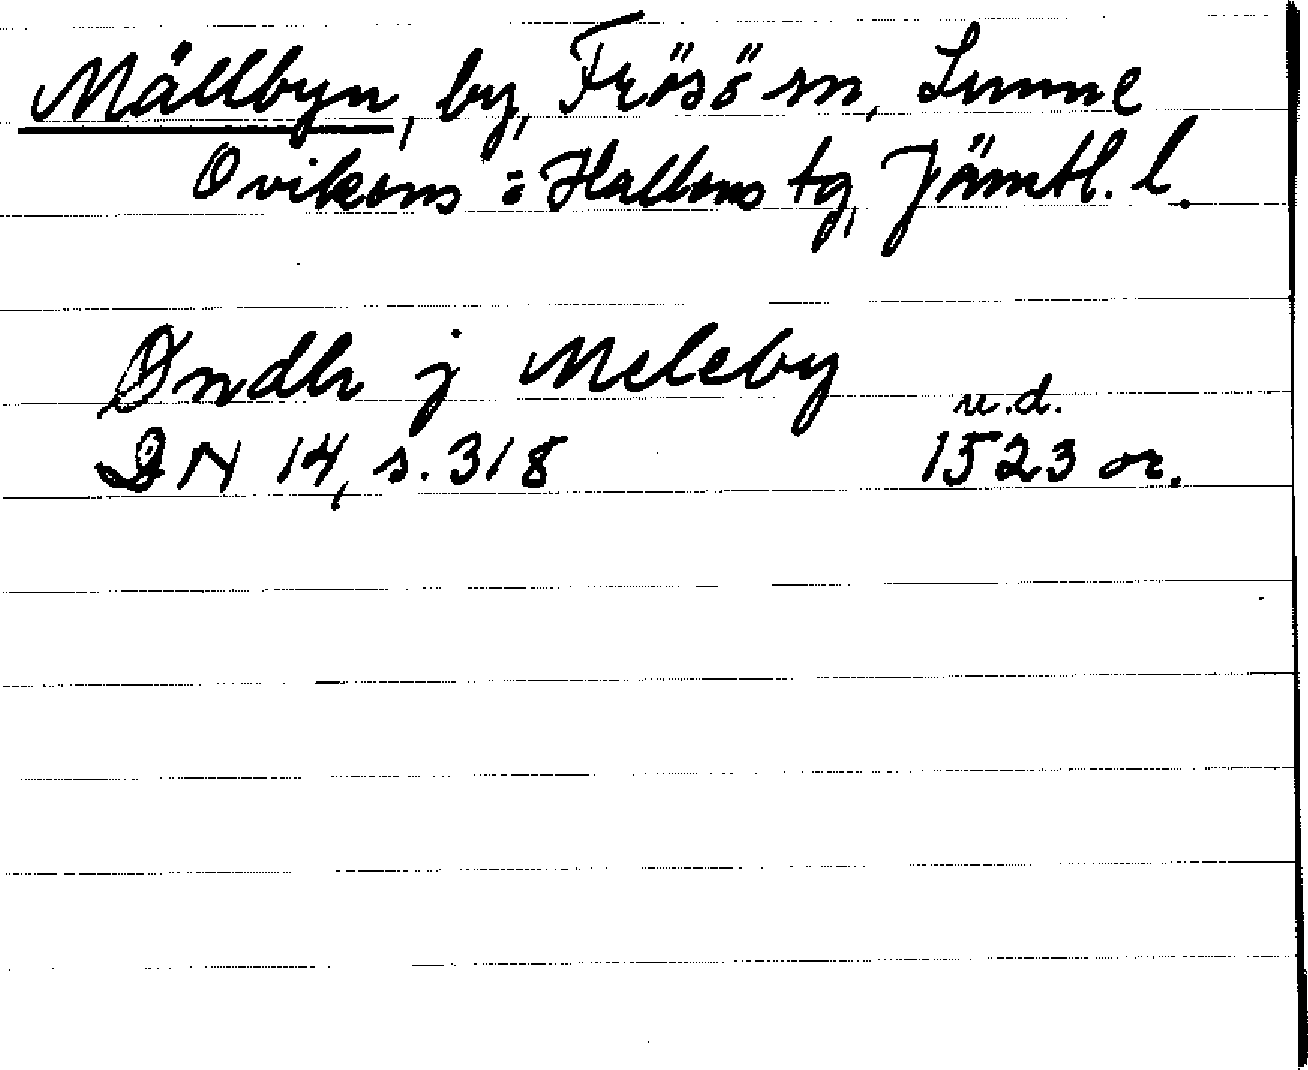 Mällbyn, by, Frösö sn, Sunne
Ovikens o Hallens tg, Jämtl. l.
Øndh j Meleby
u.d.
DN 14, s. 318 1523 or.